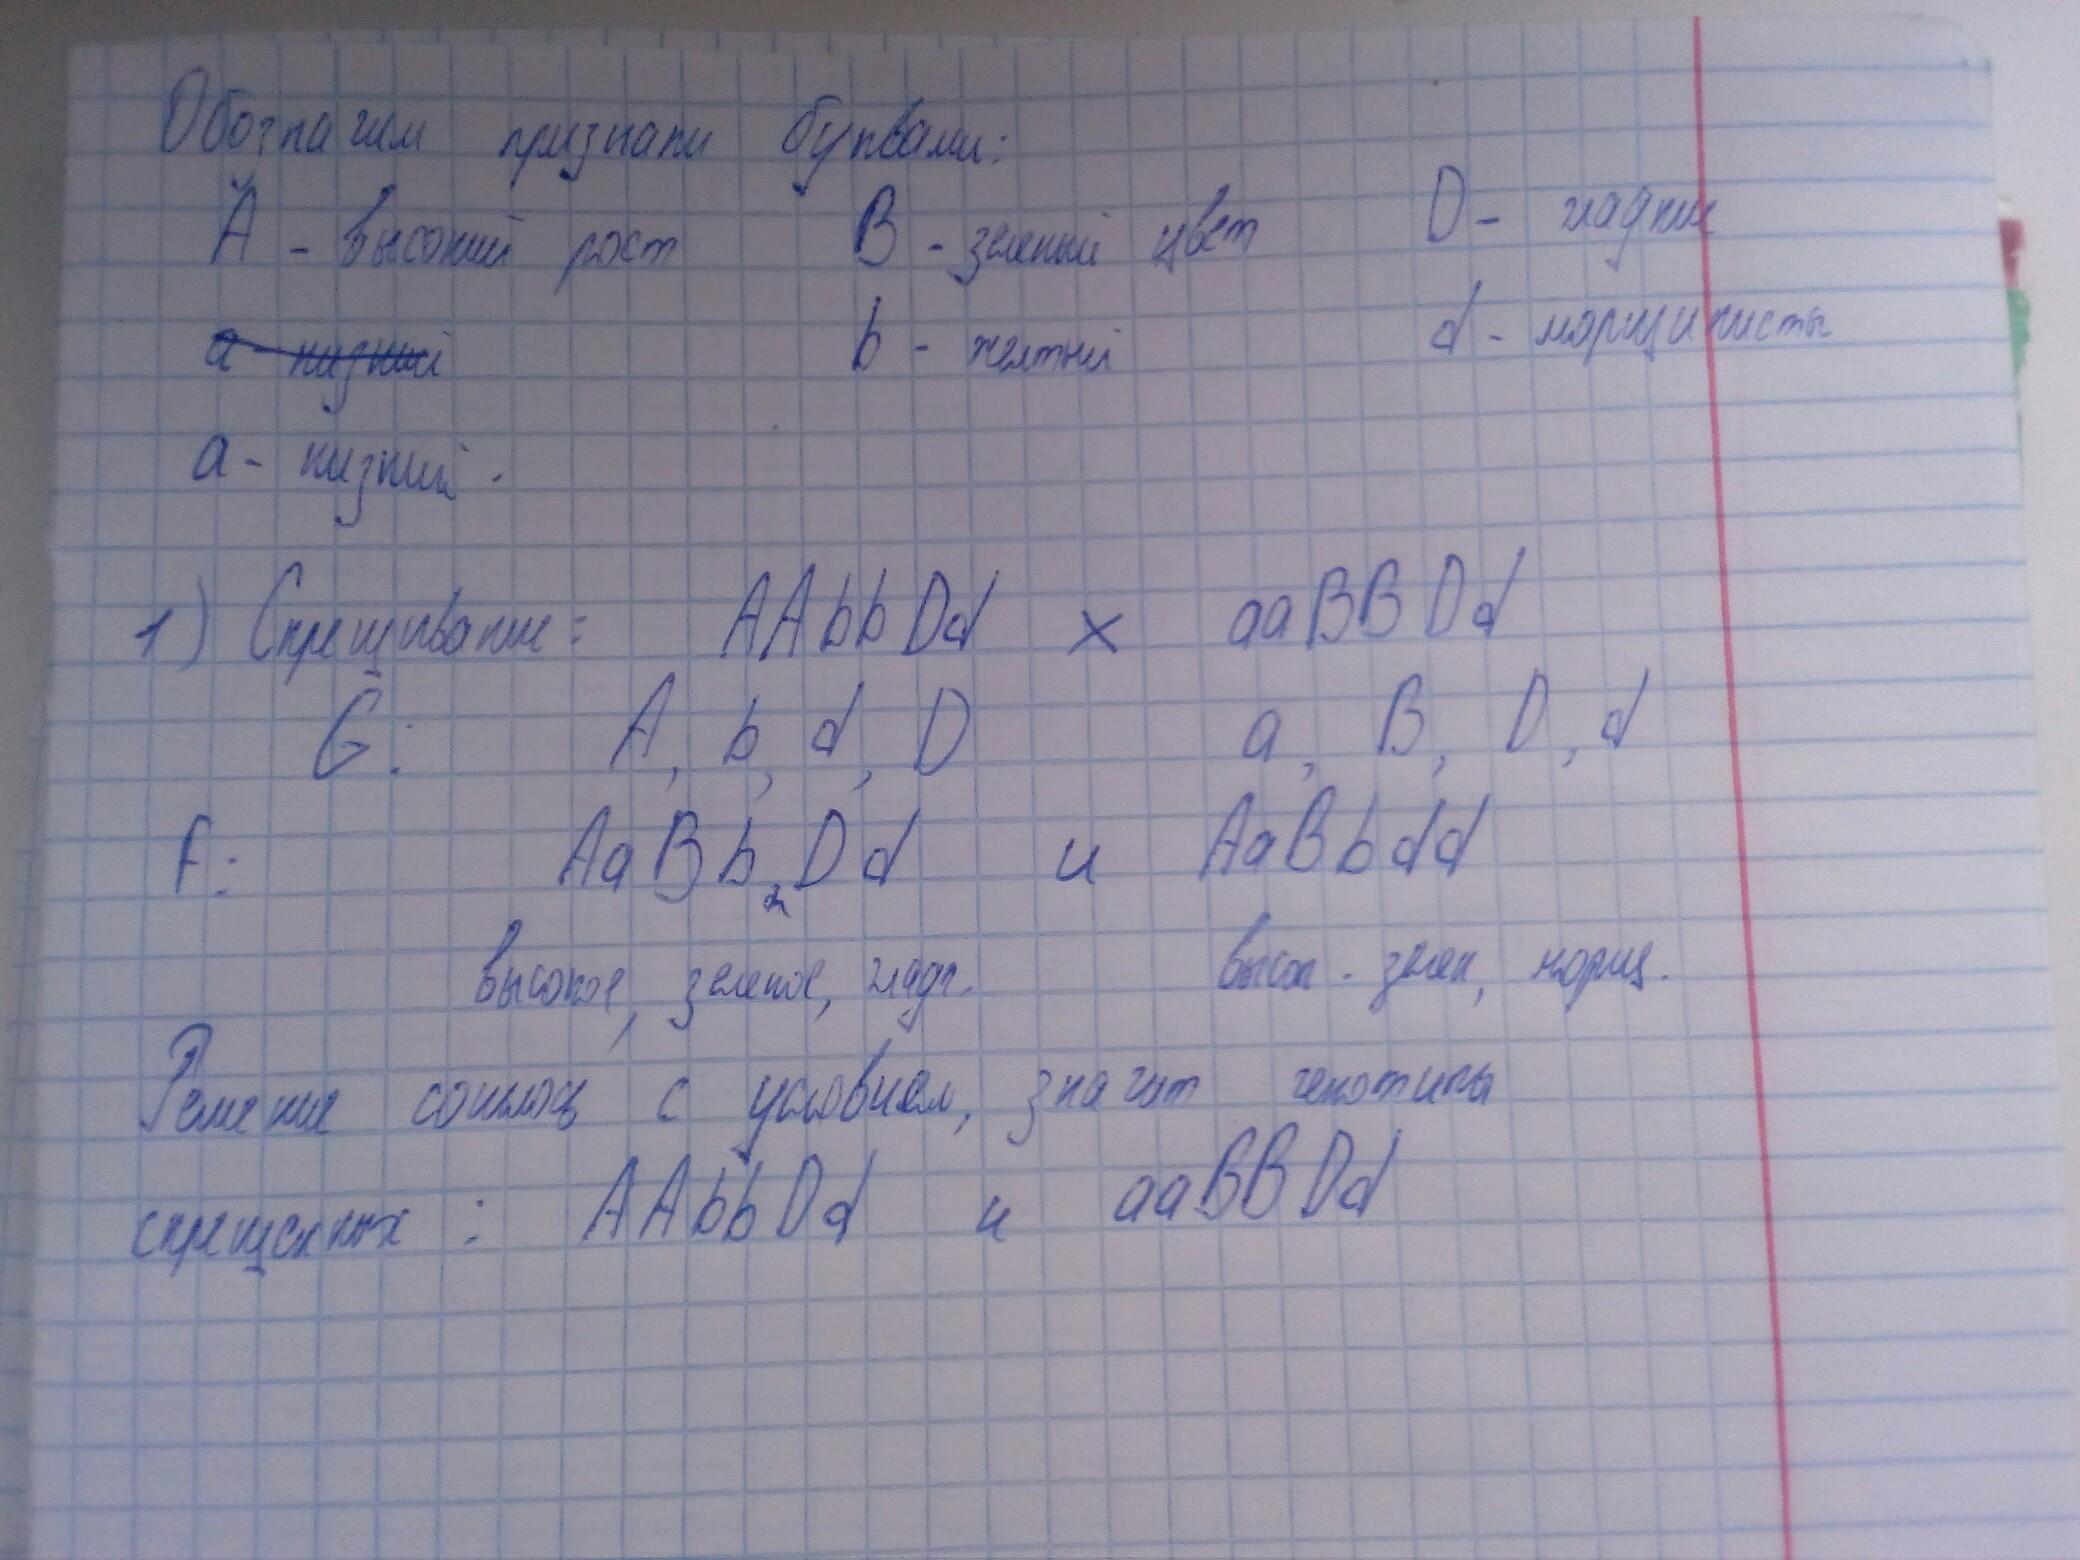 Обозначим признаки буквами:
A - высокий рост B - зеленый цвет D - гладкие
a - низкий b - желтый d - морщинисты
a - низкий.
1) Скрещивание: AAbbDd × aaBBDd
G: A, b, d, D a, B, D, d
F: AaBb Dd и AaBbdd
высокое, зеленое, гладк. высок. зелен, морщ.
Решение сошлось с условием, значит генотипы
скрещенных: AAbbDd и aaBBDd